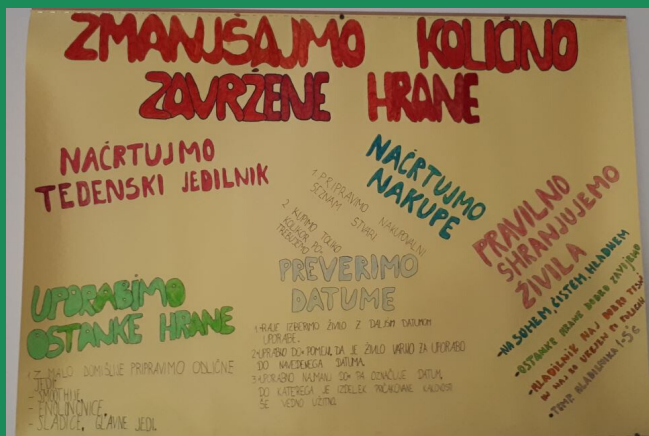 ZMANJŠAJMO KOLIČINO
ZAVRŽENE HRANE
NAČRTUJMO
TEDENSKI JEDILNIK
NAČRTUJMO
NAKUPE
1. PRIPRAVIMO NAKUPOVALNI
SEZNAM STVARI
2. KUPIMO TOLIKO
KOLIKOR PO-
TREBUJEMO
PRAVILNO
SHRANJUJEMO
ŽIVILA
-NA SUHEM, ČISTEM, HLADNEM
-OSTANKE HRANE DOBRO ZAVIJEMO
-HLADILNIK NAJ DOBRO TESNI
IN NAJ BO UREJEN PO POLICAH
-TEMP. HLADILNIKA 1-5°C
PREVERIMO
DATUME
1. RAJE IZBERIMO ŽIVILO Z DALJŠIM DATUMOM
UPORABE.
2. UPORABNO DO" POMENI, DA JE ŽIVILO VARNO ZA UPORABO
DO NAVEDENEGA DATUMA.
3. UPORABNO NAJMANJ DO" PA OZNAČUJE DATUM,
DO KATEREGA JE IZDELEK PRIČAKOVANE KAKOVOSTI
ŠE VEDNO UŽITNO.
UPORABIMO
OSTANKE HRANE
Z MALO DOMIŠLJIJE PRIPRAVIMO ODLIČNE
JEDI:
- SMOOTHIJE,
- ENOLONČNICE,
- SLADICE, GLAVNE JEDI.